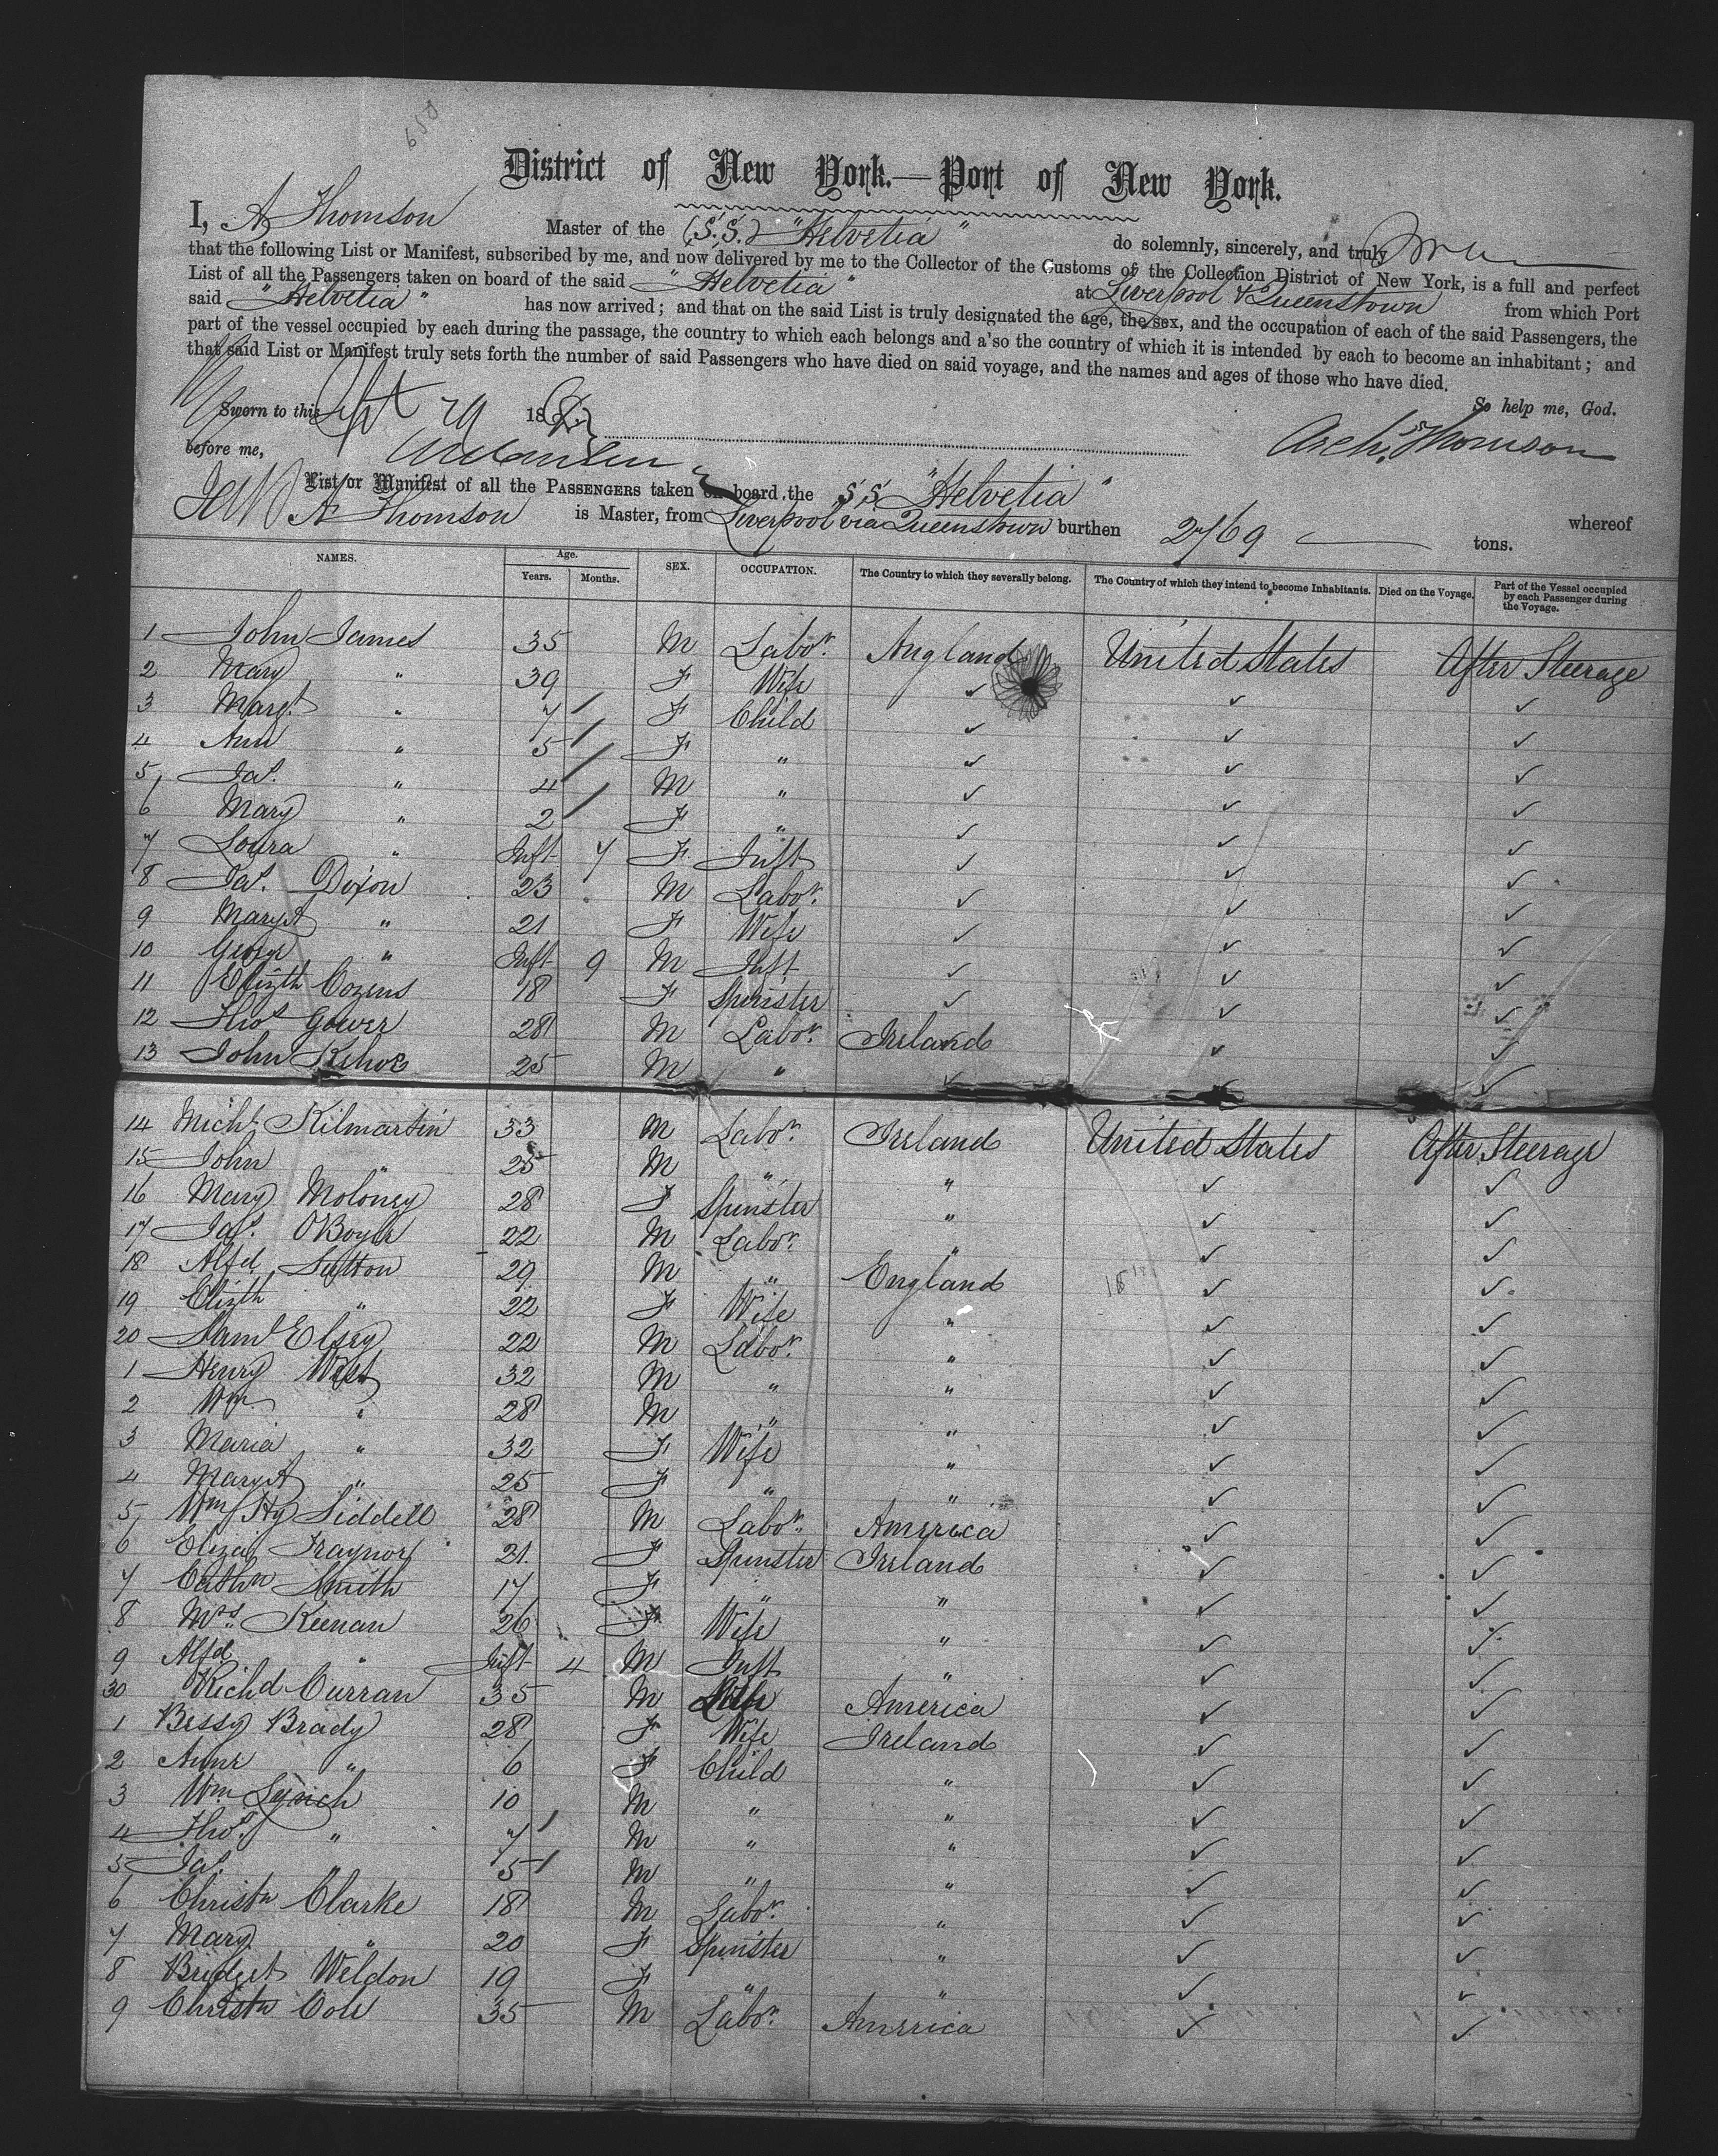 650
District of New York.—Port of New York.
I, A Thomson Master of the (S.S.) "Helvetia" do solemnly, sincerely, and truly
that the following List or Manifest, subscribed by me, and now delivered by me to the Collector of the Customs of the Collection District of New York, is a full and perfect
List of all the Passengers taken on board of the said "Helvetia" at Liverpool & Queenstown from which Port
said "Helvetia" has now arrived; and that on the said List is truly designated the age, the sex, and the occupation of each of the said Passengers, the
part of the vessel occupied by each during the passage, the country to which each belongs and a'so the country of which it is intended by each to become an inhabitant; and
that said List or Manifest truly sets forth the number of said Passengers who have died on said voyage, and the names and ages of those who have died.
So help me, God.
Sworn to this Sept 29 18
before me, Archd. Thomson
List or Manifest of all the PASSENGERS taken on board the S.S. "Helvetia" whereof
A Thomson is Master, from Liverpool via Queenstown burthen 2769 tons.
NAMES. Age. Years. Months. SEX. OCCUPATION. The Country to which they severally belong. The Country of which they intend to become Inhabitants. Died on the Voyage. Part of the Vessel occupied by each Passenger during the Voyage.
1 John James 35 M Labor. England United States After Steerage
2 Mary " 39 F Wife ✓ ✓ ✓
3 Margt " 7 / F Child ✓ ✓ ✓
4 Ann " 5 / F " ✓ ✓ ✓
5 Jas. " 4 / M " ✓ ✓ ✓
6 Mary " 2 / F " ✓ ✓ ✓
7 Loura " Inft 7 F Inft ✓ ✓ ✓
8 Jas. Dixon 23 M Labor. ✓ ✓ ✓
9 Mary A " 21 F Wife ✓ ✓ ✓
10 George " Inft 9 M Inft ✓ ✓ ✓
11 Elizth Cozens 18 F Spinster ✓ ✓ ✓
12 Thos Gower 28 M Labor. Ireland ✓ ✓
13 John Kehoe 25 M " ✓ ✓ ✓
14 Michl Kilmartin 33 M Labor. Ireland United States After Steerage
15 John " 25 M " " ✓ ✓
16 Mary Moloney 28 F Spinster " ✓ ✓
17 Jas. OBoyle 22 M Labor. " ✓ ✓
18 Alfd Sutton 29 M " England ✓ ✓
19 Elizth " 22 F Wife " ✓ ✓
20 Saml Elsey 22 M Labor. " ✓ ✓
1 Henry West 32 M " " ✓ ✓
2 Wm " 28 M " " ✓ ✓
3 Maria " 32 F Wife " ✓ ✓
4 Mary A " 25 F " " ✓ ✓
5 Wm Hy Siddell 28 M Labor. America ✓ ✓
6 Eliza Traynor 21 F Spinster Ireland ✓ ✓
7 Cathn Smith 17 F " " ✓ ✓
8 Mrs. Keenan 26 F Wife " ✓ ✓
9 Alfd " Inft 4 M Inft " ✓ ✓
30 Richd Curran 35 M America ✓ ✓
1 Bessy Brady 28 F Wife Ireland ✓ ✓
2 Anne " 6 F Child " ✓ ✓
3 Wm Lynch 10 M " " ✓ ✓
4 Thos. " 7 / M " " ✓ ✓
5 Jas. " 5 / M " " ✓ ✓
6 Christn Clarke 18 M Labor. " ✓ ✓
7 Mary " 20 F Spinster " ✓ ✓
8 Bridget Weldon 19 F " " ✓ ✓
9 Christn Cole 35 M Labor. America ✓ ✓